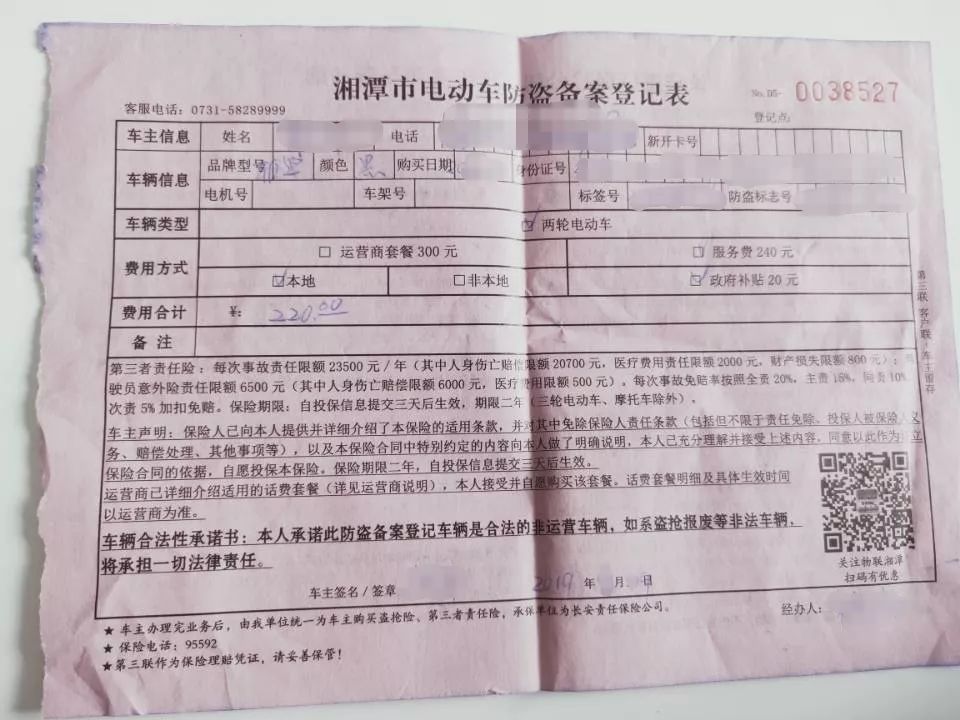 湘潭市电动车防盗备案登记表
No.D5- 0038527
客服电话：0731-58289999
登记点：
车主信息 姓名 电话 新开卡号
车辆信息 品牌型号 颜色 黑 购买日期 身份证号
电机号 车架号 标签号 防盗标志号
车辆类型 ☑ 两轮电动车
费用方式 □ 运营商套餐 300 元 □ 服务费 240 元
☑本地 □非本地 ☑ 政府补贴 20 元
费用合计 ¥： 220.00
备 注
第三者责任险：每次事故责任限额 23500 元／年（其中人身伤亡赔偿限额 20700 元，医疗费用责任限额 2000 元，财产损失限额 800 元）；驾
驶员意外险责任限额 6500 元（其中人身伤亡赔偿限额 6000 元，医疗费用限额 500 元）。每次事故免赔率按照全责 20%，主责 15%，同责 10%
次责 5% 加扣免赔。保险期限：自投保信息提交三天后生效，期限二年（三轮电动车、摩托车除外）。
车主声明：保险人已向本人提供并详细介绍了本保险的适用条款，并对其中免除保险人责任条款（包括但不限于责任免除、投保人被保险人义
务、赔偿处理、其他事项等），以及本保险合同中特别约定的内容向本人做了明确说明，本人已充分理解并接受上述内容，同意以此作为订立
保险合同的依据，自愿投保本保险。保险期限二年，自投保信息提交三天后生效。
运营商已详细介绍适用的话费套餐（详见运营商说明），本人接受并自愿购买该套餐。话费套餐明细及具体生效时间
以运营商为准。
车辆合法性承诺书：本人承诺此防盗备案登记车辆是合法的非运营车辆，如系盗抢报废等非法车辆，
将承担一切法律责任。
关注物联湘潭
扫码有优惠
车主签名／签章 2019 年 月 日
★ 车主办理完业务后，由我单位统一为车主购买盗抢险、第三者责任险，承保单位为长安责任保险公司。
经办人：
★ 保险电话：95592
★第三联作为保险理赔凭证，请妥善保管！
第三联 客户联：车主留存